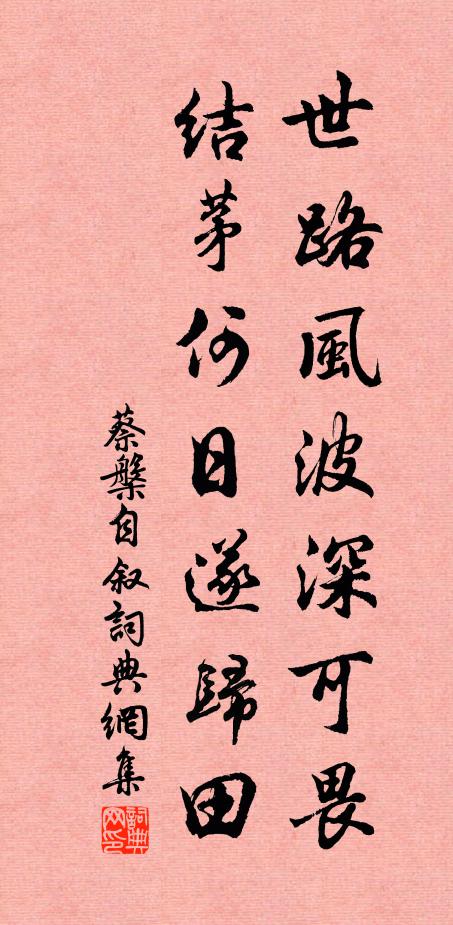 世路風波深可畏
結茅何日遂歸田
蔡槃自叙詞典網集
詞典网印